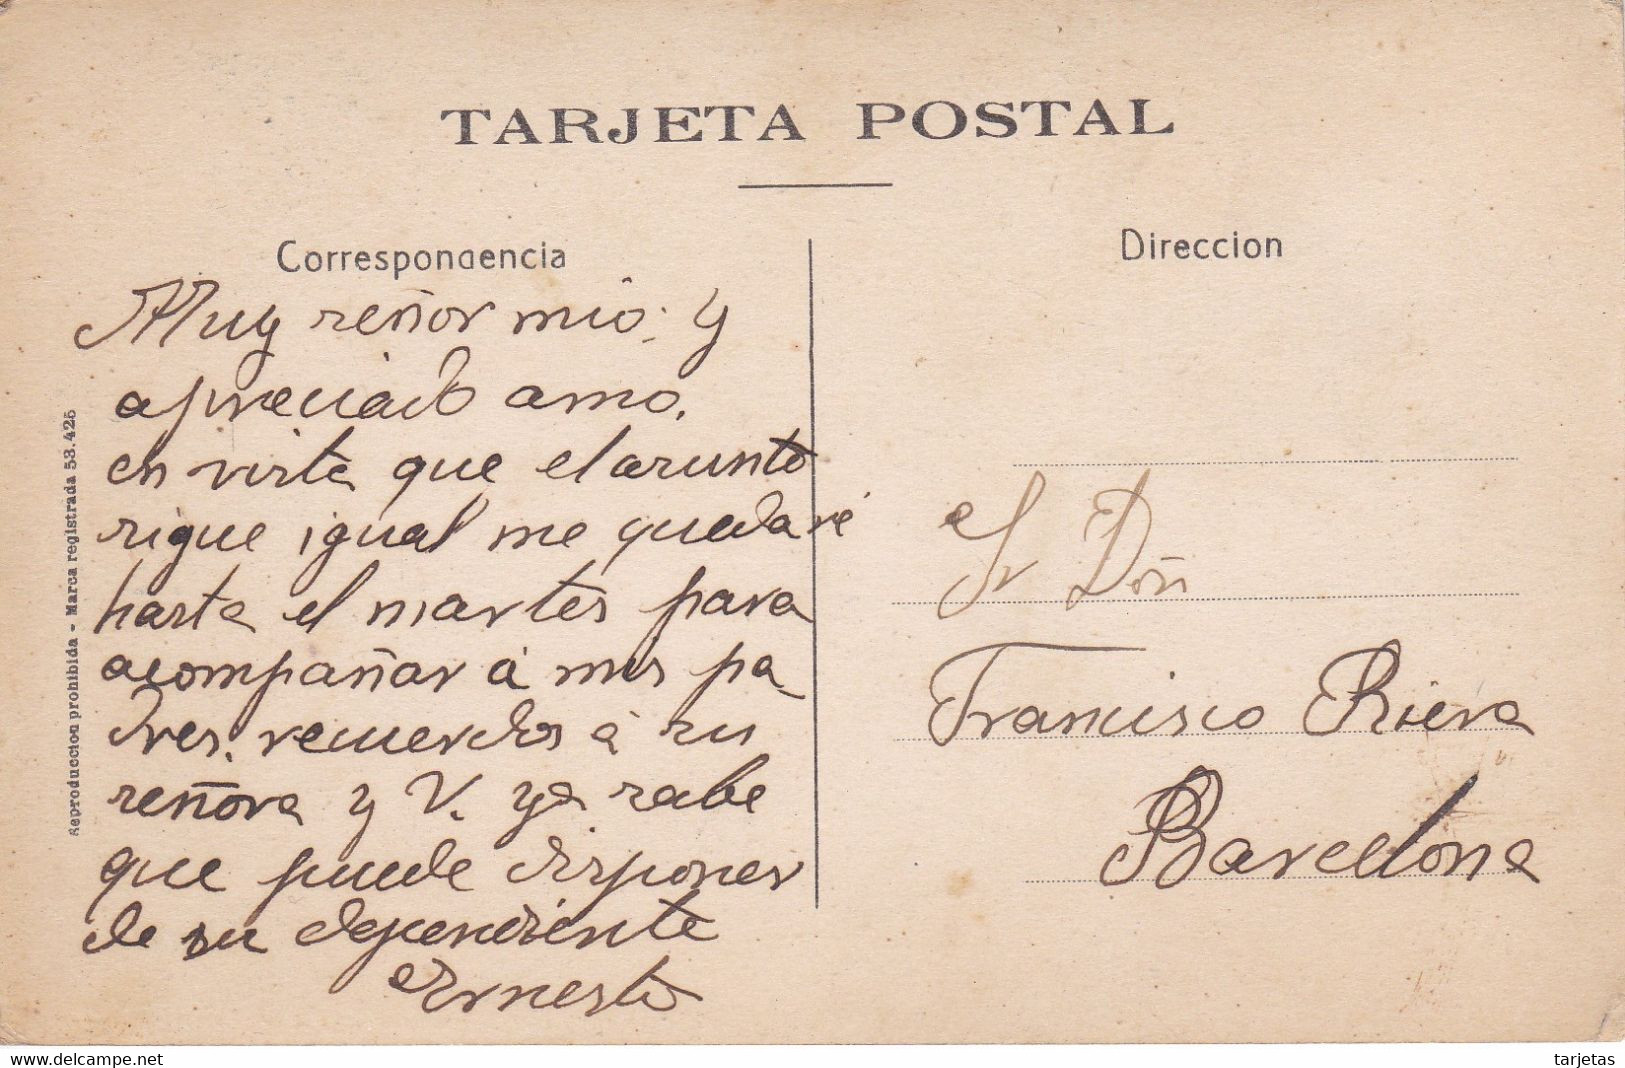 TARJETA POSTAL
Correspondencia
Direccion
Muy señor mio: y
apreciado amo,
en vista que el asunto
sigue igual me quedaré
hasta el martes para
acompañar á mis pa-
dres. recuerdos á su
señora y V. ya sabe
que puede disponer
de su dependiente
Ernesto
Sr Don
Francisco Riera
Barcelona
Reproduccion prohibida - Marca registrada 53.425
www.delcampe.net
tarjetas